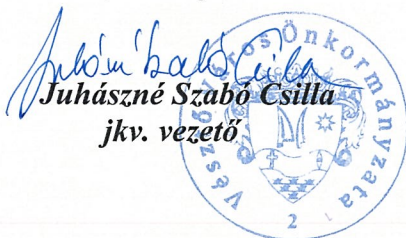 Juhászné Szabó Csilla
Juhászné Szabó Csilla
jkv. vezető
Vésztő Város Önkormányzata
2